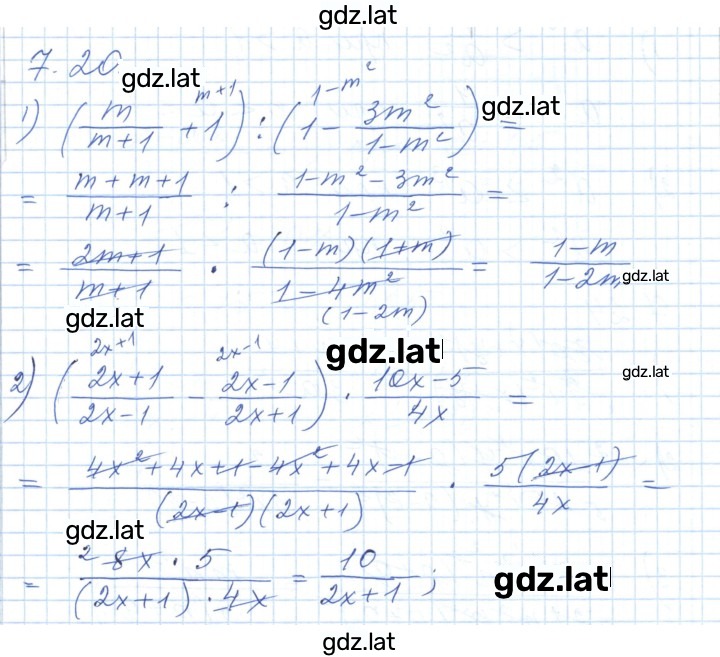 gdz.lat
7.20
gdz.lat
1) (m/(m+1) + 1^(m+1)) : (1^(1-m²) - 3m²/(1-m²)) =
gdz.lat
= (m+m+1)/(m+1) : (1-m²-3m²)/(1-m²) =
= (2m+1)/(m+1) · ((1-m)(1+m))/(1-4m²) = (1-m)/(1-2m)
(1-2m)
gdz.lat
gdz.lat
gdz.lat
gdz.lat
2) ((2x+1)/(2x-1)^(2x+1) - (2x-1)/(2x+1)^(2x-1)) · (10x-5)/4x =
= (4x²+4x+1-4x²+4x-1)/((2x-1)(2x+1)) · 5(2x-1)/4x =
gdz.lat
= (²8x · 5)/((2x+1) · 4x) = 10/(2x+1) ;
gdz.lat
gdz.lat